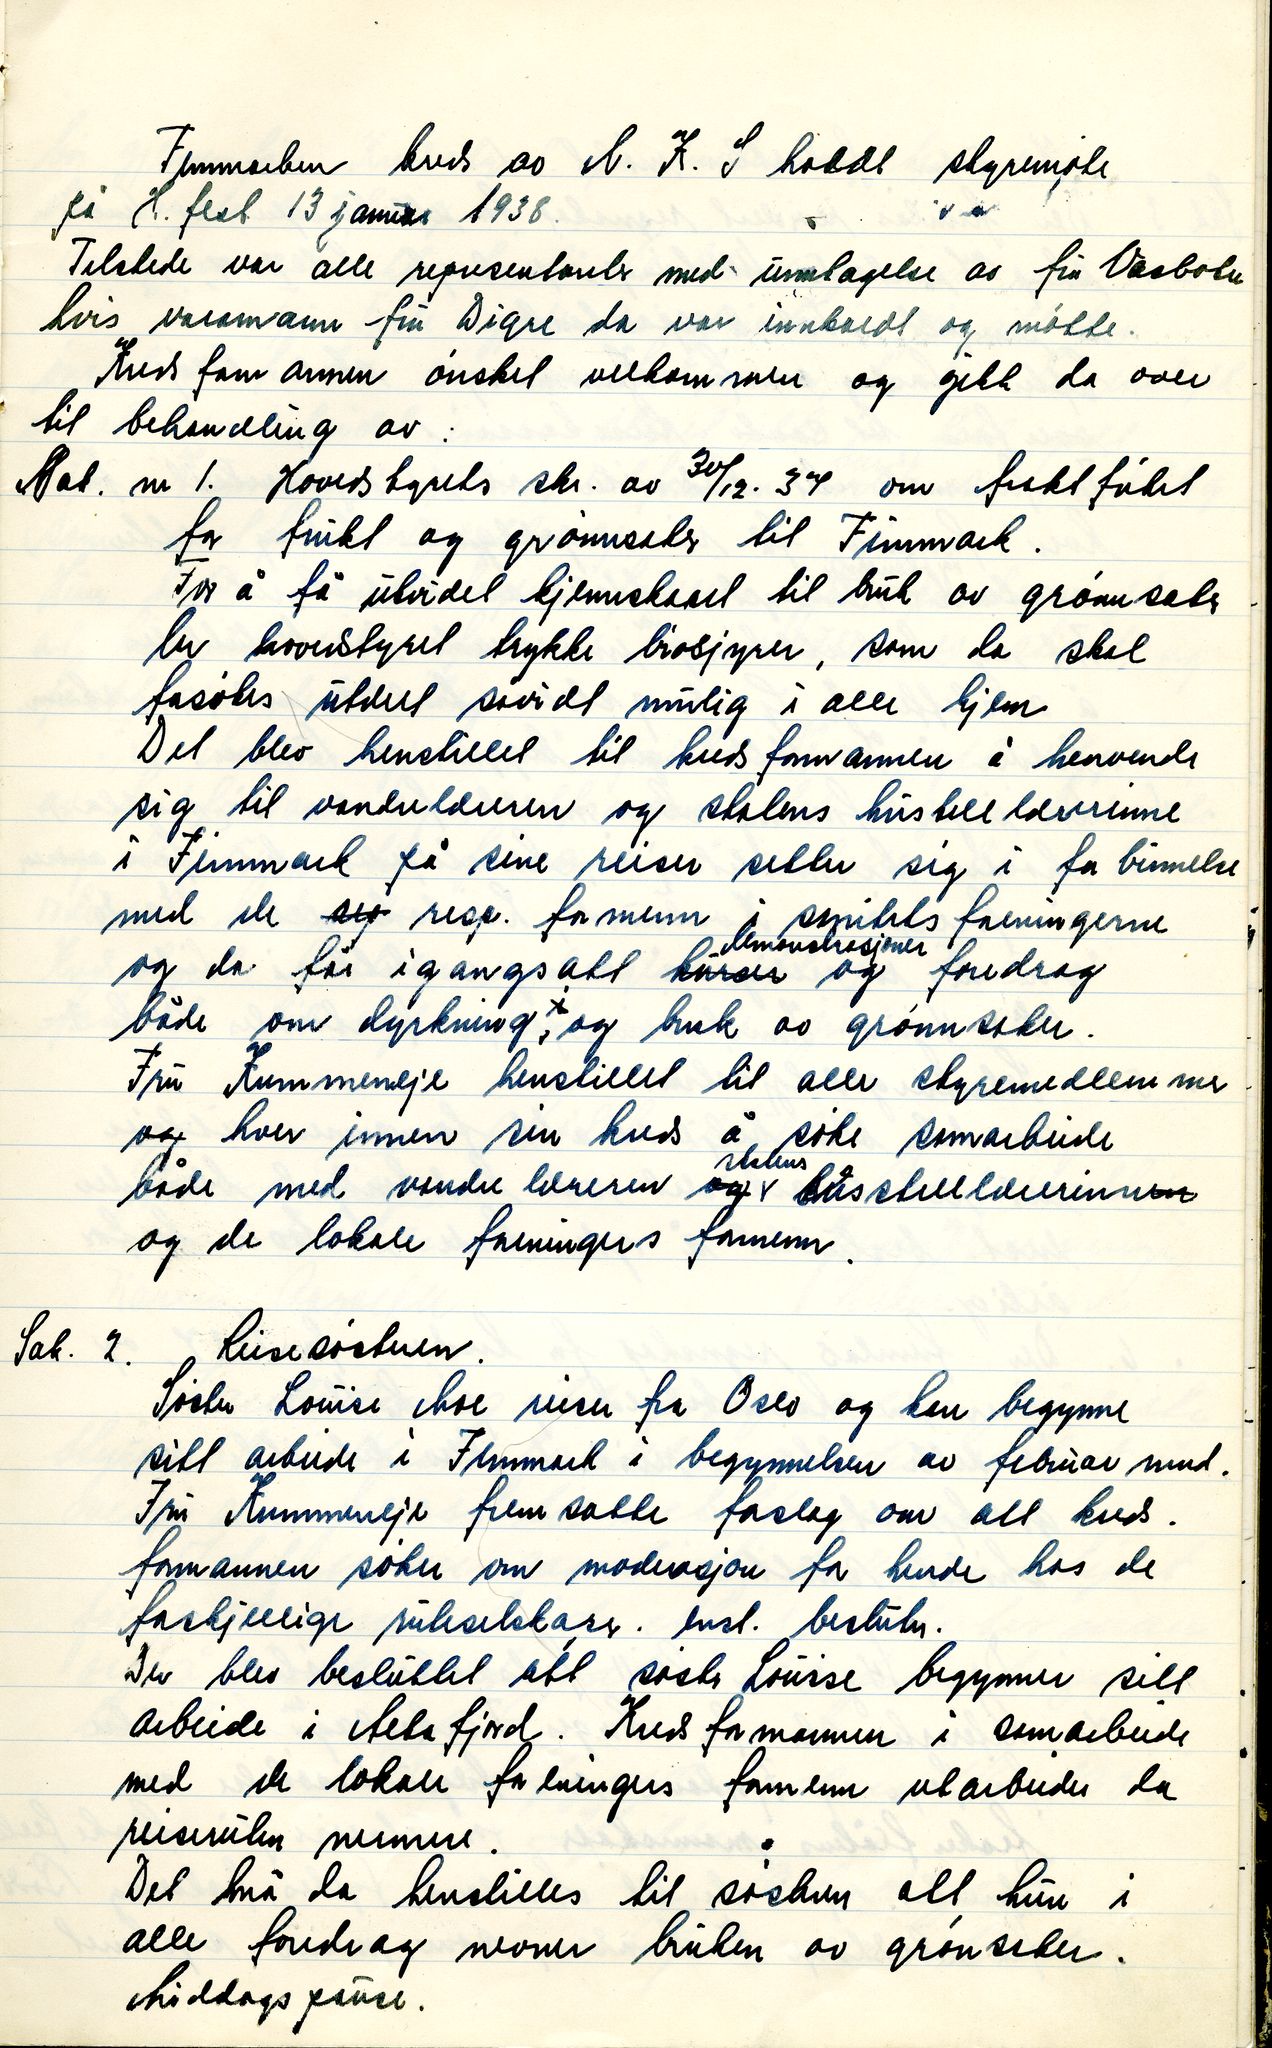 Finnmarken kreds av N. K. S holdt styremøte
på H.fest 13 januar 1938.
Tilstede var alle representanter med unntagelse av fru
hvis varamann fru Digre da var innkaldt og møtte.
Kredsformannen ønsket velkommen og gikk da over
til behandling av :
Sak. nr 1. Hovedstyrets skr. av 30/12. 37 om fraktfritet
for frukt og grønnsaker til Finnmark.
For å få utvidet kjennskapet til bruk av grønnsaker
lar hovedstyret trykke brosjyrer, som da skal
forsøkes utdelt såvidt mulig i alle hjem
Det blev henstillet til kredsformannen å henvende
sig til vandrelæreren og statens hustellærerinne
i Finnmark på sine reiser setter sig i forbinnelse
med de resp. formenn i sanitetsforeningerne
og da får igangsatt kurser demonstrasjoner og foredrag
både om dyrkning, og bruk av grønnsaker.
Fru Kummeneje henstillet til alle styremedlemmer
og hver innen sin kreds å søke samarbeide
både med vandrelæreren og statens husstellærerinnen
og de lokale foreningers formenn.
Sak. 2. Reisesøsteren.
Søster Louise Moe reiser fra Oslo og kan begynne
sitt arbeide i Finnmark i begynnelsen av februar mnd.
Fru Kummeneje fremsatte forslag om att kreds.
formannen søker om moderasjon for hende hos de
forskjellige ruteselskaper. enst. besluttn.
Der blev besluttet att søster Louise begynner sitt
arbeide i Altafjord. Kredsformannen i samarbeide
med de lokale foreningers formenn utarbeider da
reiseruten nermere.
Det må da henstilles til søsteren att hun i
alle foredrag nevner bruken av grønsaker.
Middagspause.